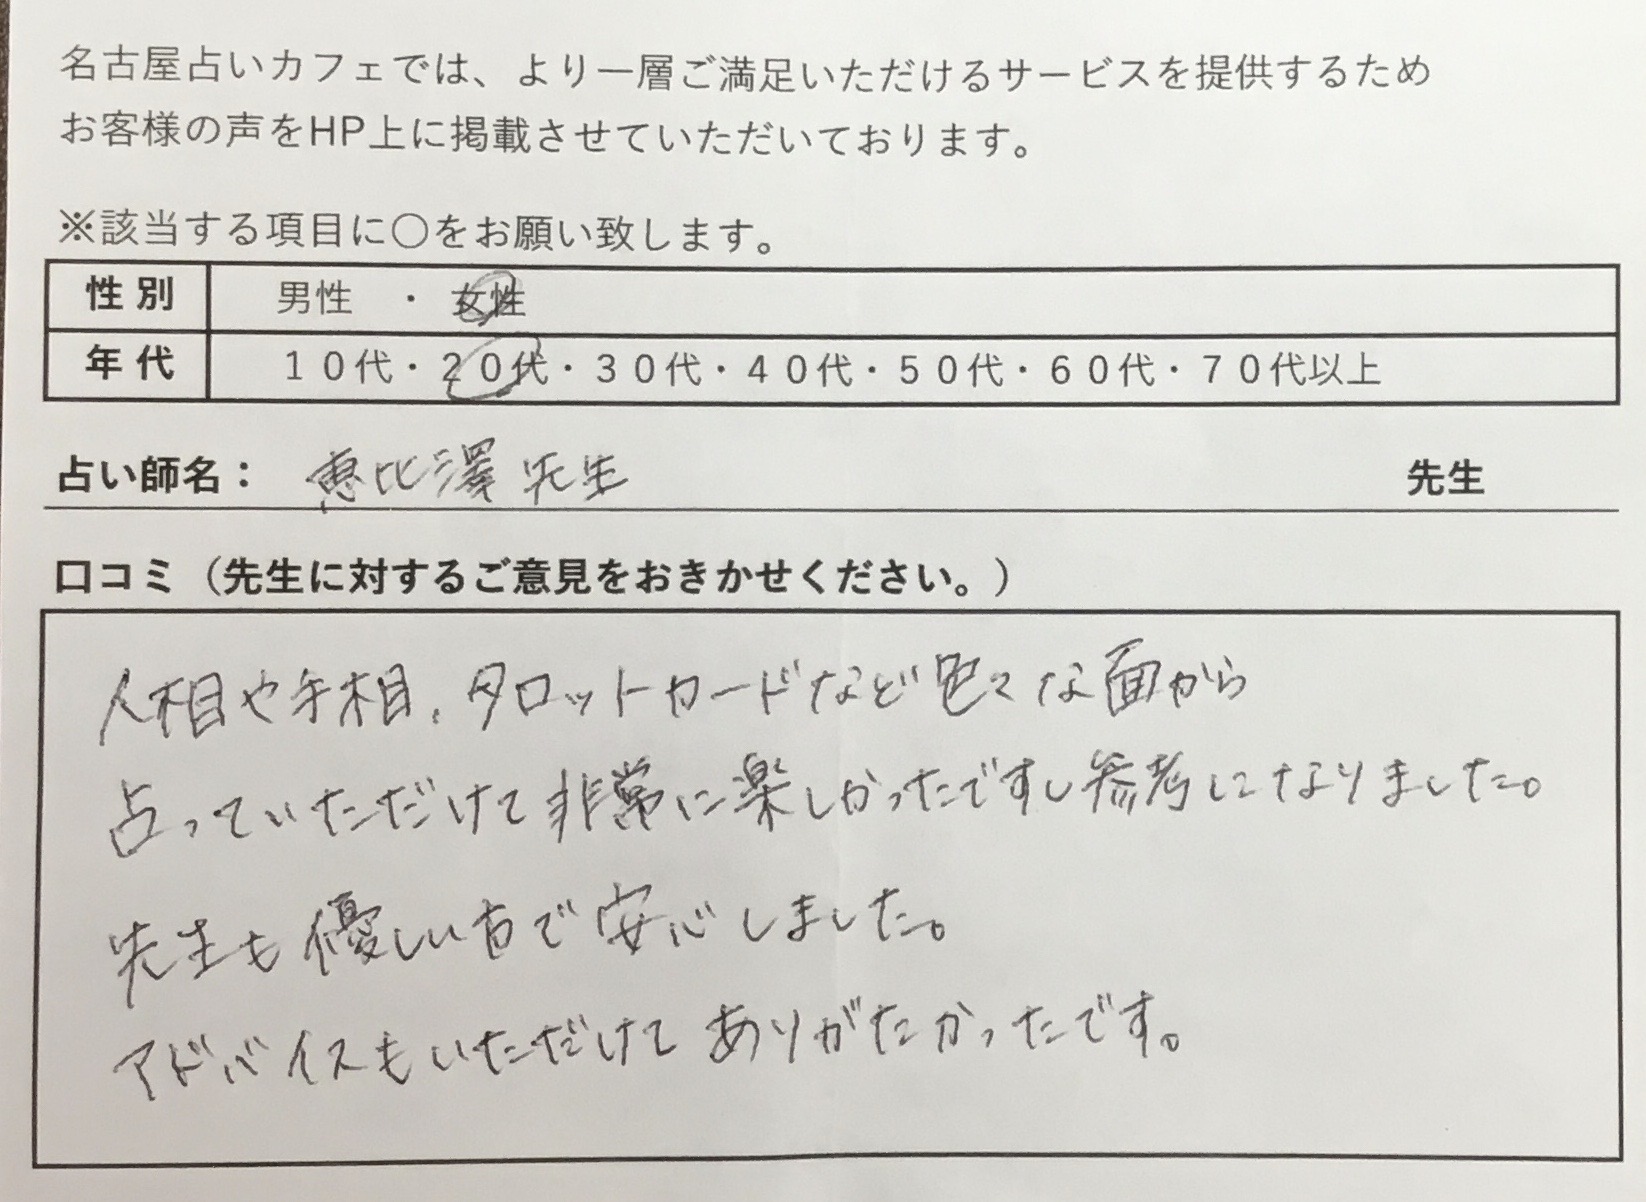 名古屋占いカフェでは、より一層ご満足いただけるサービスを提供するため
お客様の声をHP上に掲載させていただいております。
※該当する項目に〇をお願い致します。
性別 男性 ・ 女性
年代 １０代・２０代・３０代・４０代・５０代・６０代・７０代以上
占い師名： 恵比澤先生 先生
口コミ（先生に対するご意見をおきかせください。）
人相や手相、タロットカードなど色々な面から
占っていただけて非常に楽しかったですし参考になりました。
先生も優しい方で安心しました。
アドバイスもいただけてありがたかったです。